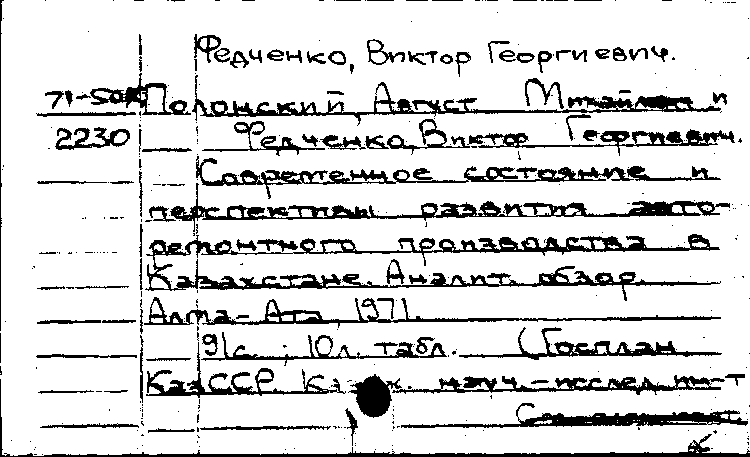 Федченко, Виктор Георгиевич.
Полонский, Август Михайлович и
2230 Федченко, Виктор Георгиевич.
Современное состояние и
перспективы развития авто-
ремонтного производства в
Казахстане. Аналит. обзор.
Алма-Ата, 1971.
91с.; 10л. табл. (Госплан
КазССР. Казах. науч.-исслед. ин-т